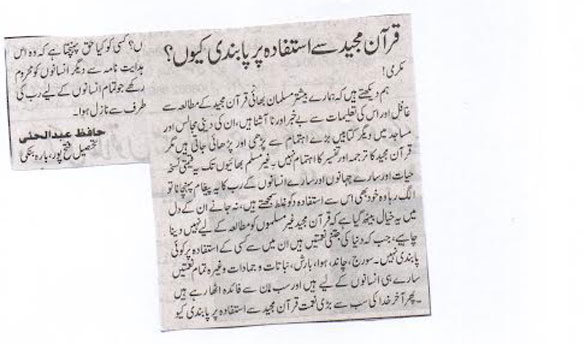 قرآن مجید سے استفادہ پر پابندی کیوں؟
مکرمی!
ہم دیکھتے ہیں کہ ہمارے بیشتر مسلمان بھائی قرآن مجید کے مطالعہ سے
غافل اور اس کی تعلیمات سے بے خبر اور نا آشنا ہیں، ان کی دینی مجالس اور
مساجد میں دیگر کتابیں بڑے اہتمام سے پڑھی اور پڑھائی جاتی ہیں مگر
قرآن مجید کا ترجمہ اور تفسیر کا اہتمام نہیں۔ غیر مسلم بھائیوں تک یہ قیمتی نسخہ
حیات اور سارے جہانوں اور سارے انسانوں کے رب کا یہ پیغام پہنچانا تو
الگ رہا وہ خود بھی اس سے استفادہ کو غلط سمجھتے ہیں، نہ جانے ان کے دل
میں یہ خیال بیٹھ گیا ہے کہ قرآن مجید غیر مسلموں کو مطالعہ کے لیے نہیں دینا
چاہیے، جب کہ دنیا کی جتنی نعمتیں ہیں ان میں سے کسی کے استفادہ پر کوئی
پابندی نہیں۔ سورج، چاند، ہوا، بارش، نباتات و جمادات وغیرہ تمام نعمتیں
سارے ہی انسانوں کے لیے ہیں اور سب ان سے فائدہ اٹھا رہے ہیں
۔ پھر آخر خدا کی سب سے بڑی نعمت قرآن مجید سے استفادہ پر پابندی کیو
ں؟ کسی کو کیا حق پہنچتا ہے کہ وہ اس
ہدایت نامہ سے دیگر انسانوں کو محروم
رکھے جو تمام انسانوں کے لیے رب کی
طرف سے نازل ہوا۔
حافظ عبدالحئی
تحصیل فتح پور، بارہ بنکی